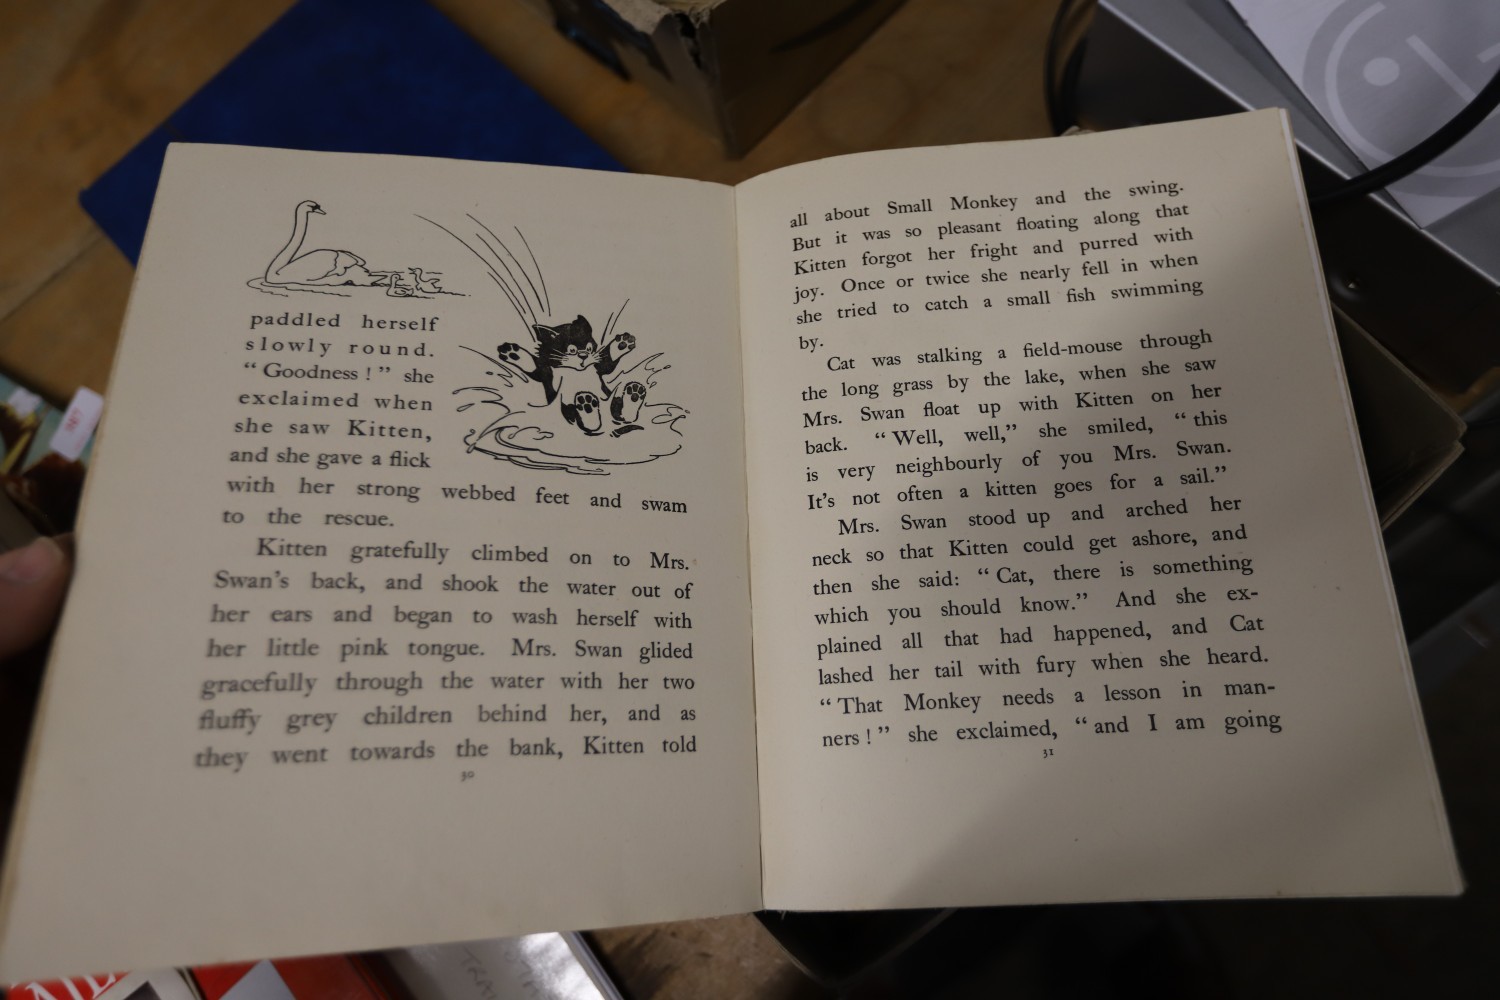 paddled herself
slowly round.
“ Goodness ! ” she
exclaimed when
she saw Kitten,
and she gave a flick
with her strong webbed feet and swam
to the rescue.
Kitten gratefully climbed on to Mrs.
Swan’s back, and shook the water out of
her ears and began to wash herself with
her little pink tongue. Mrs. Swan glided
gracefully through the water with her two
fluffy grey children behind her, and as
they went towards the bank, Kitten told
30
all about Small Monkey and the swing.
But it was so pleasant floating along that
Kitten forgot her fright and purred with
joy. Once or twice she nearly fell in when
she tried to catch a small fish swimming
by.
Cat was stalking a field-mouse through
the long grass by the lake, when she saw
Mrs. Swan float up with Kitten on her
back. “ Well, well,” she smiled, “ this
is very neighbourly of you Mrs. Swan.
It’s not often a kitten goes for a sail.”
Mrs. Swan stood up and arched her
neck so that Kitten could get ashore, and
then she said: “ Cat, there is something
which you should know.” And she ex-
plained all that had happened, and Cat
lashed her tail with fury when she heard.
“ That Monkey needs a lesson in man-
ners ! ” she exclaimed, “ and I am going
31